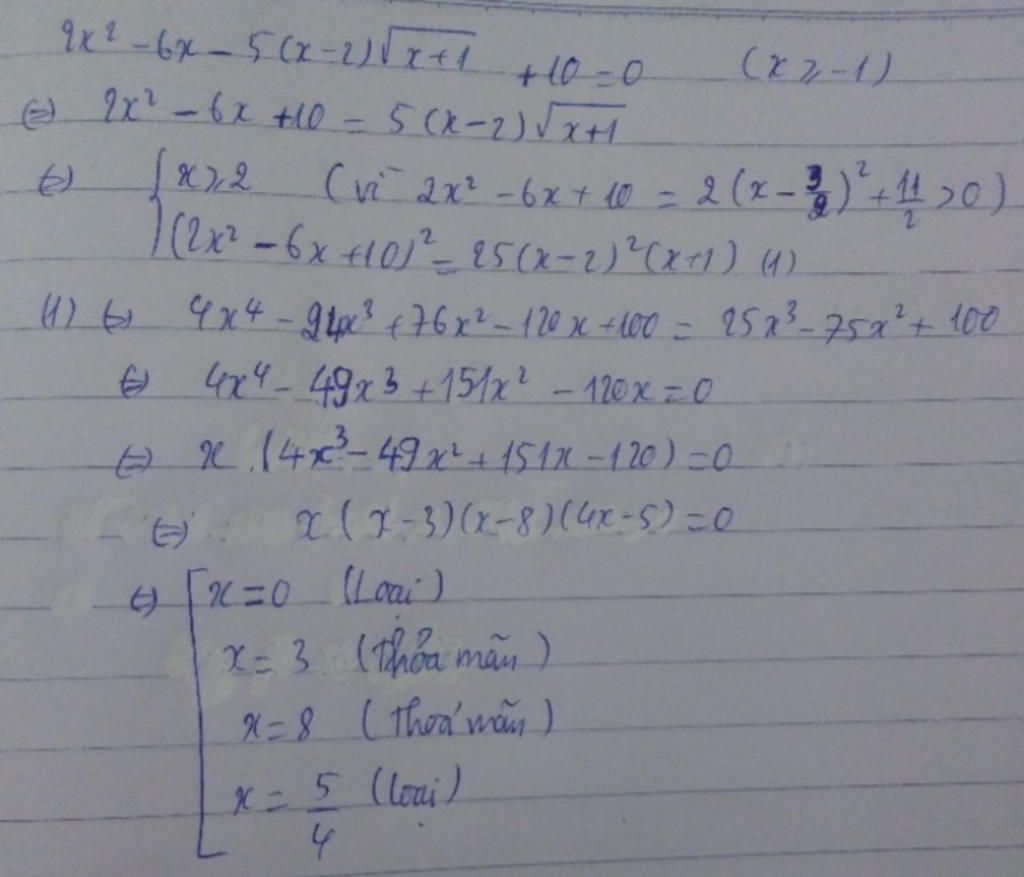 2x² - 6x - 5(x-2)√(x+1) + 10 = 0 (x ≥ -1)
(=) 2x² - 6x + 10 = 5(x-2)√(x+1)
(=) { x ≥ 2 (vì 2x² - 6x + 10 = 2(x - 3/2)² + 11/2 > 0)
(2x² - 6x + 10)² = 25(x-2)²(x+1) (1)
(1) (=) 4x⁴ - 24x³ + 76x² - 120x + 100 = 25x³ - 75x² + 100
(=) 4x⁴ - 49x³ + 151x² - 120x = 0
(=) x.(4x³ - 49x² + 151x - 120) = 0
(=) x(x-3)(x-8)(4x-5) = 0
(=) [ x = 0 (Loại)
x = 3 (Thỏa mãn)
x = 8 (Thoả mãn)
x = 5/4 (loại)